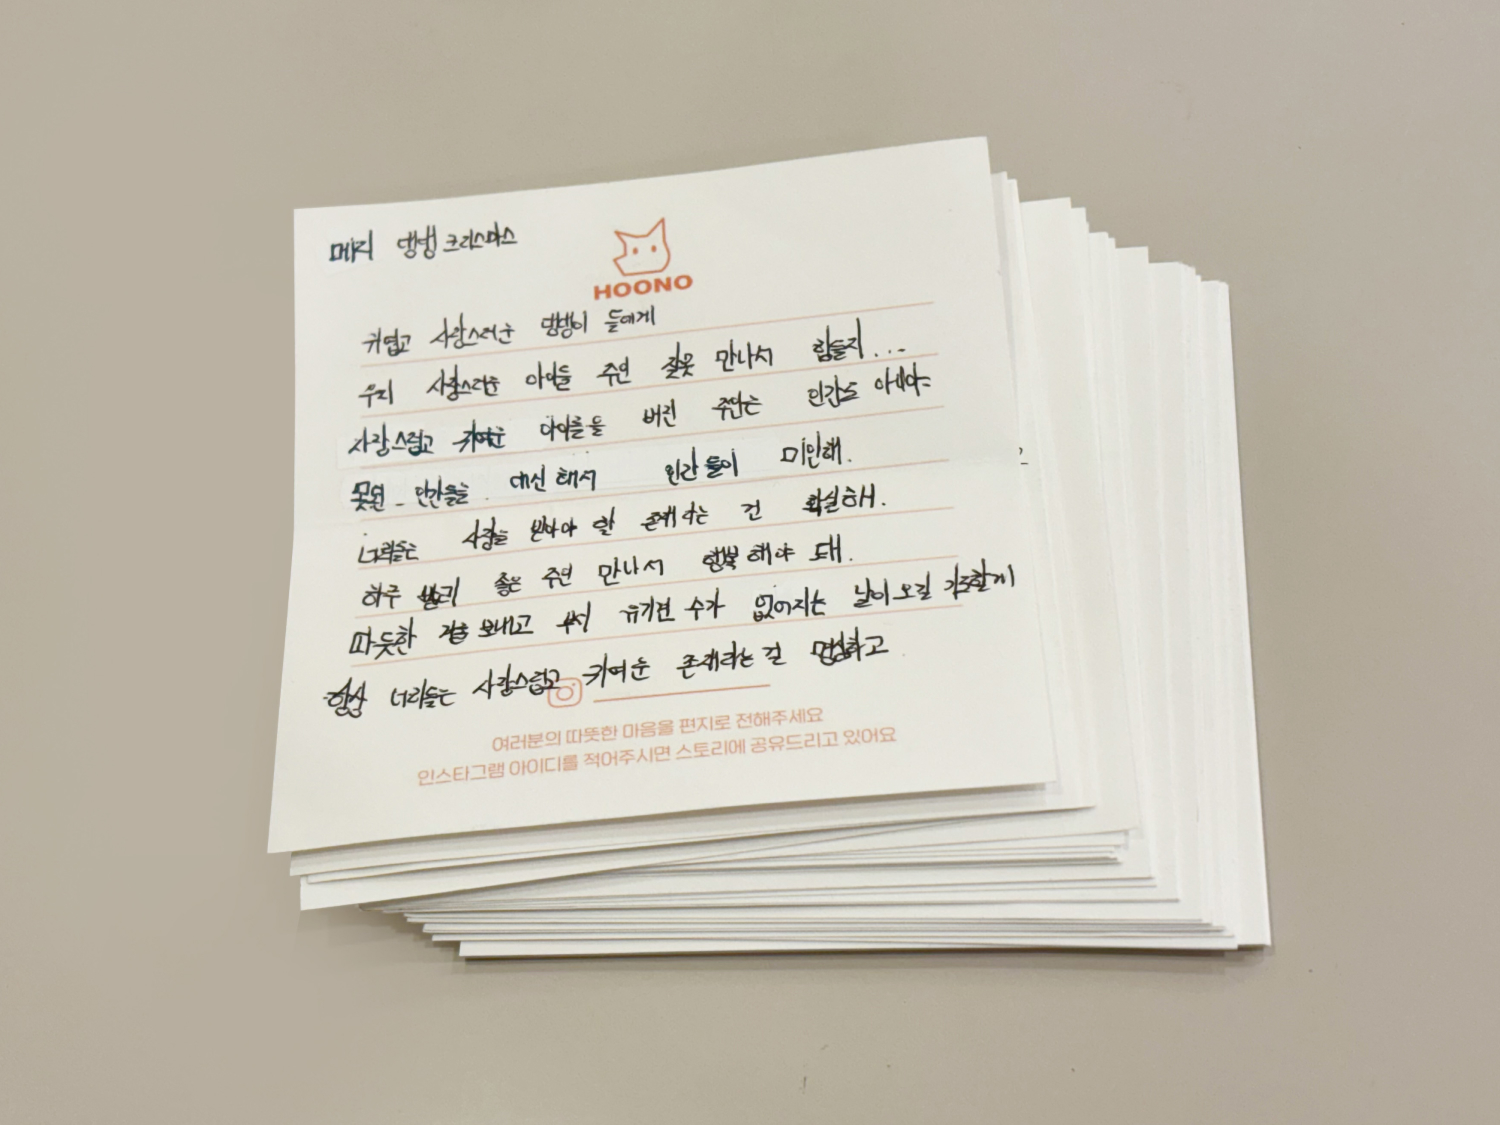 메리 댕댕 크리스마스
HOONO
귀엽고 사랑스러운 댕댕이 들에게
우리 사랑스러운 아이들 주인 잘못 만나서 힘들지...
사랑스럽고 귀여운 아이들을 버린 주인는 인간도 아니야
못된 인간들을 대신해서 인간들이 미안해.
너희들은 사랑을 받아야 할 존재라는 건 확실해.
하루 빨리 좋은 주인 만나서 행복해야 돼.
따듯한 겨울 보내고 유기견 수가 없어지는 날이 오길 기도할게
항상 너희들은 사랑스럽고 귀여운 존재라는 걸 명심하고
여러분의 따뜻한 마음을 편지로 전해주세요
인스타그램 아이디를 적어주시면 스토리에 공유드리고 있어요